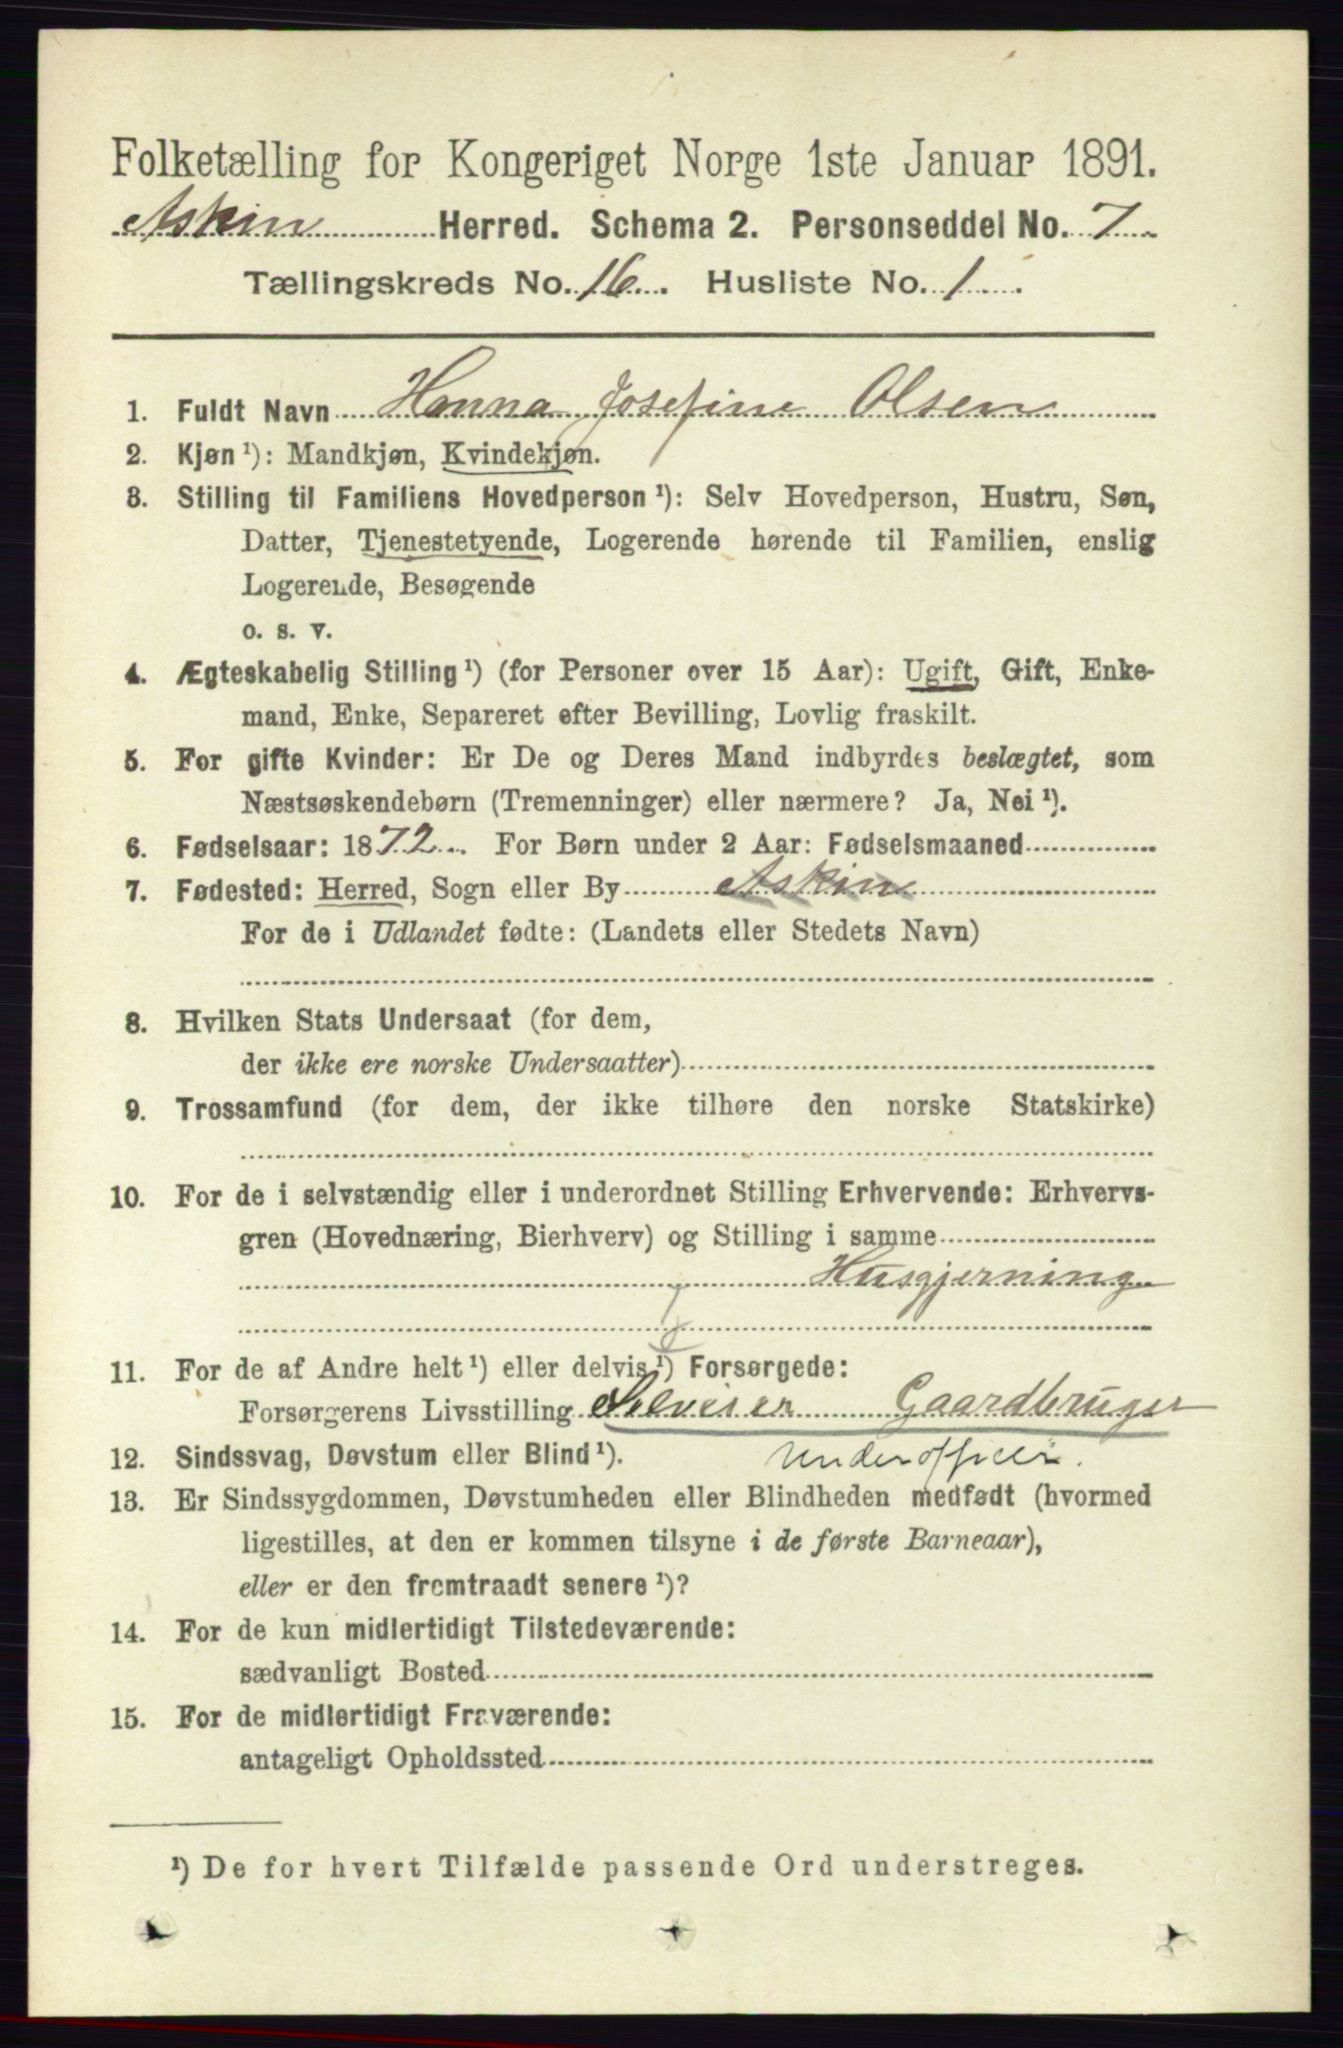 Folketælling for Kongeriget Norge 1ste Januar 1891.
Askim Herred. Schema 2. Personseddel No. 7
Tællingskreds No. 16. Husliste No. 1.
1. Fuldt Navn Hanna Josefine Olsen
2. Kjøn ¹): Mandkjøn, Kvindekjøn.
3. Stilling til Familiens Hovedperson ¹): Selv Hovedperson, Hustru, Søn,
Datter, Tjenestetyende, Logerende hørende til Familien, enslig
Logerende, Besøgende
o. s. v.
4. Ægteskabelig Stilling ¹) (for Personer over 15 Aar): Ugift, Gift, Enke-
mand, Enke, Separeret efter Bevilling, Lovlig fraskilt.
5. For gifte Kvinder: Er De og Deres Mand indbyrdes beslægtet, som
Næstsøskendebørn (Tremenninger) eller nærmere? Ja, Nei ¹).
6. Fødselsaar: 1872. For Børn under 2 Aar: Fødselsmaaned
7. Fødested: Herred, Sogn eller By Askim
For de i Udlandet fødte: (Landets eller Stedets Navn)
8. Hvilken Stats Undersaat (for dem,
der ikke ere norske Undersaatter)
9. Trossamfund (for dem, der ikke tilhøre den norske Statskirke)
10. For de i selvstændig eller i underordnet Stilling Erhvervende: Erhvervs-
gren (Hovednæring, Bierhverv) og Stilling i samme
Husgjerning
11. For de af Andre helt ¹) eller delvis ¹) Forsørgede:
Forsørgerens Livsstilling Selveier Gaardbruger
12. Sindssvag, Døvstum eller Blind ¹). Underofficer.
13. Er Sindssygdommen, Døvstumheden eller Blindheden medfødt (hvormed
ligestilles, at den er kommen tilsyne i de første Barneaar),
eller er den fremtraadt senere ¹)?
14. For de kun midlertidigt Tilstedeværende:
sædvanligt Bosted
15. For de midlertidigt Fraværende:
antageligt Opholdssted
¹) De for hvert Tilfælde passende Ord understreges.